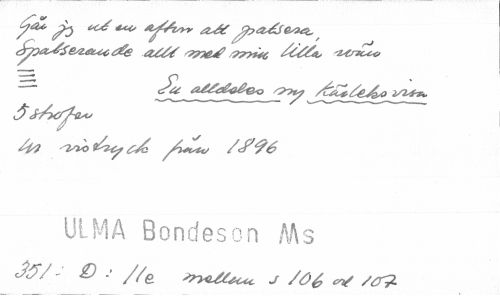 Går jg ut en afton att patsera,
Spatserande allt med min lilla vän
En alldeles ny Kärleksvisa
5 strofer
ur vistryck från 1896
ULMA Bondeson Ms
351: D: 11e mellan s 106 od 107